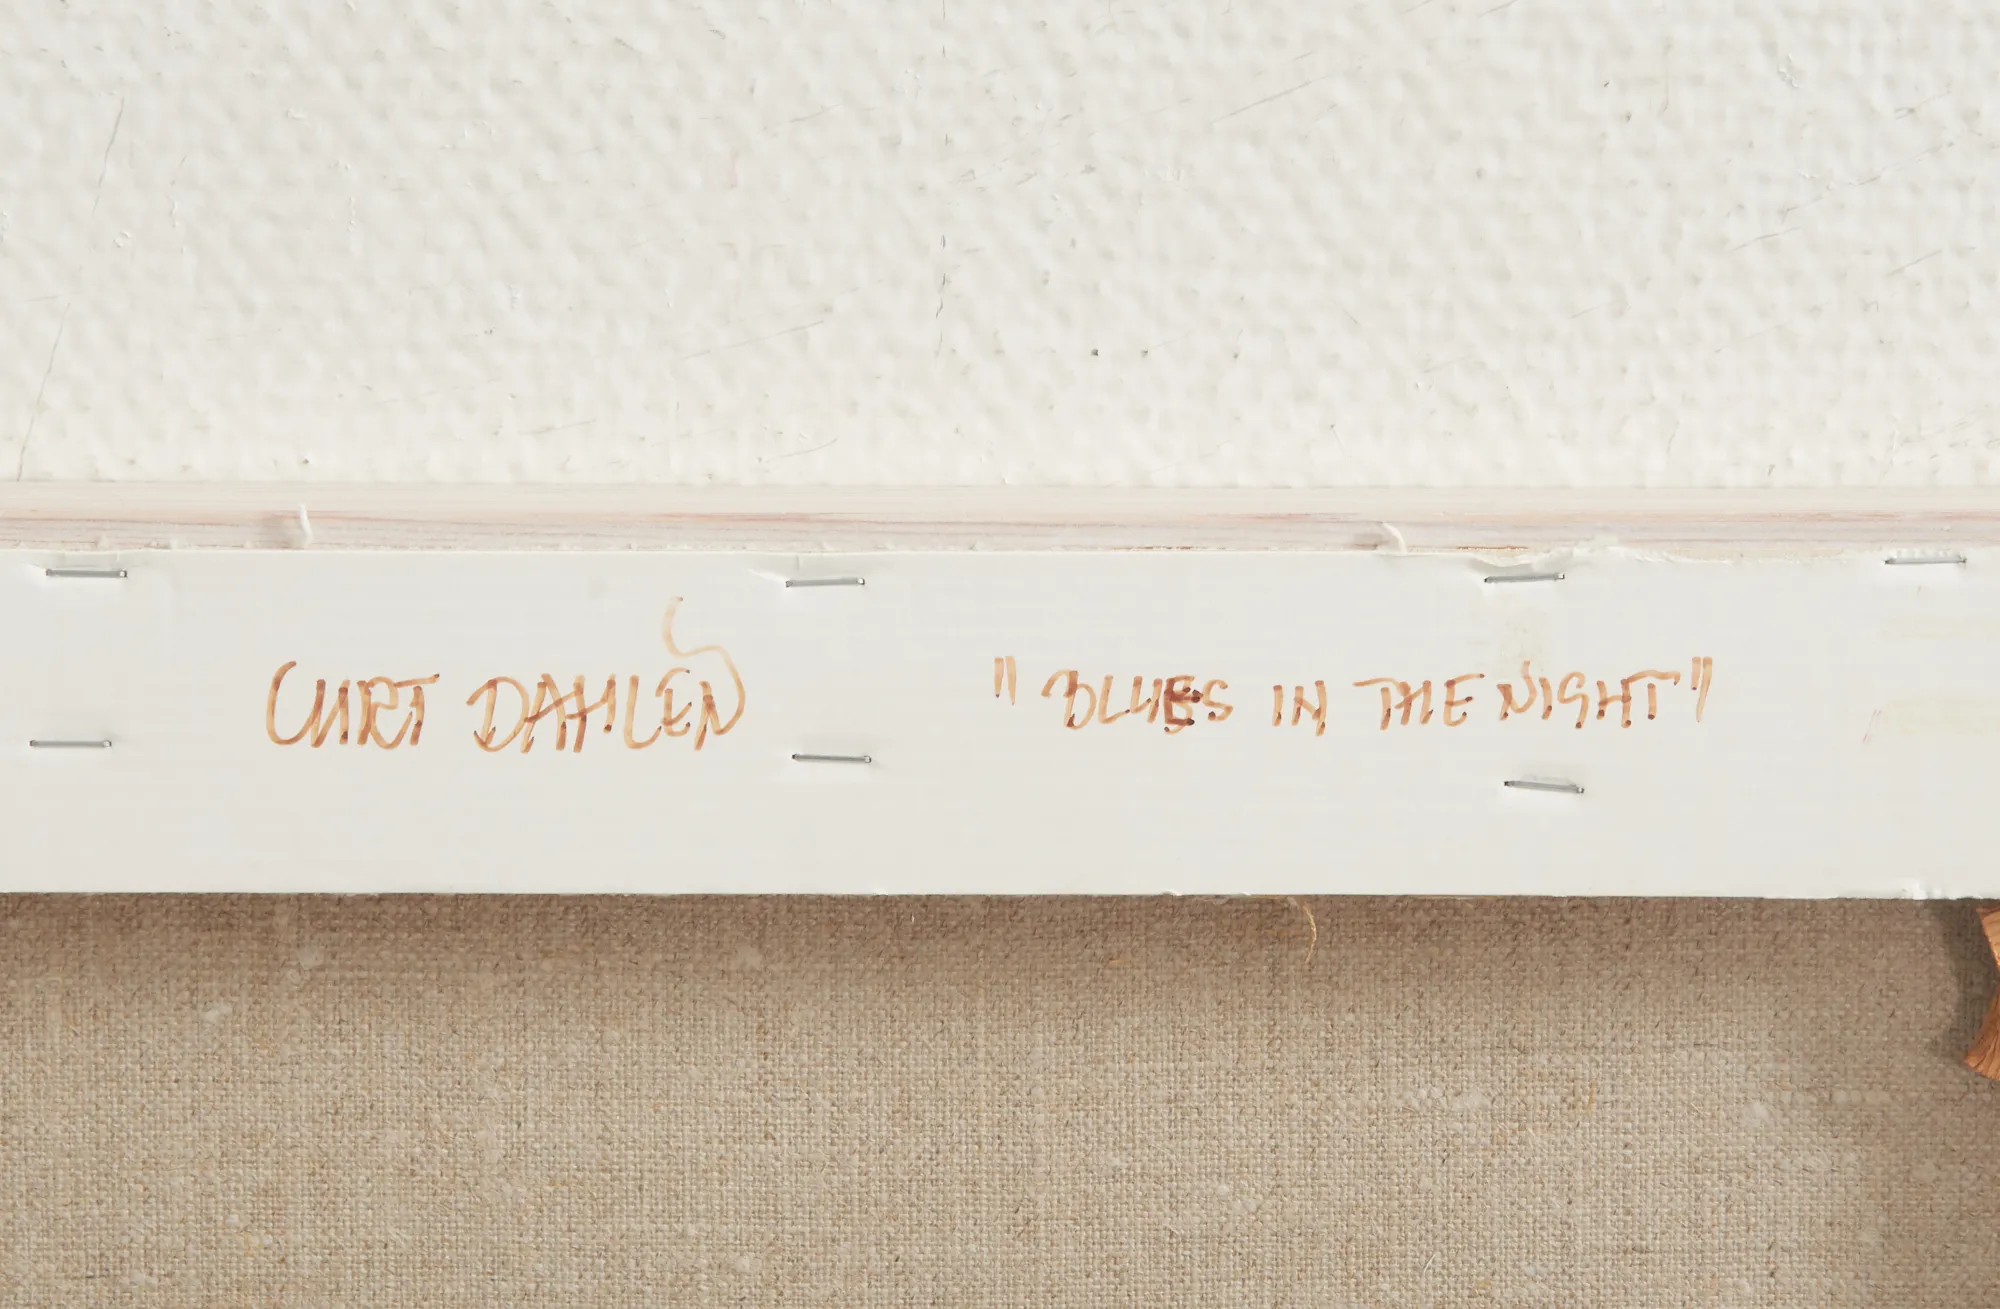 CURT DAHLÉN "BLUES IN THE NIGHT"